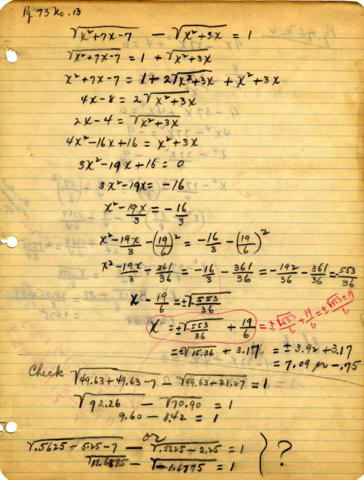 Pg 73 No. 13
√x²+7x-7 - √x²+3x = 1
√x²+7x-7 = 1 + √x²+3x
x²+7x-7 = 1+2√x²+3x + x²+3x
4x-8 = 2√x²+3x
2x-4 = √x²+3x
4x²-16x+16 = x²+3x
3x²-19x+16 = 0
3x²-19x = -16
x²-19x/3 = -16/3
x²-19x/3 - (19/6)² = -16/3 - (19/6)²
x²-19x/3 - 361/36 = -16/3 - 361/36 = -192/36 - 361/36 = -553/36
x - 19/6 = ±√553/36
x = ±√553/36 + 19/6 = ±√553/6 + 19/6 = ±√553+19/6
= ±√15.36 + 3.17 = ±3.92 + 3.17
= 7.09 or -.75
Check √49.63+49.63-7 - √49.63+21.27 = 1
√92.26 - √70.90 = 1
9.60 - 8.42 = 1
or
√.5625 - 5.25-7 - √.5625-2.25 = 1
√11.6875 - √-1.6875 = 1
?